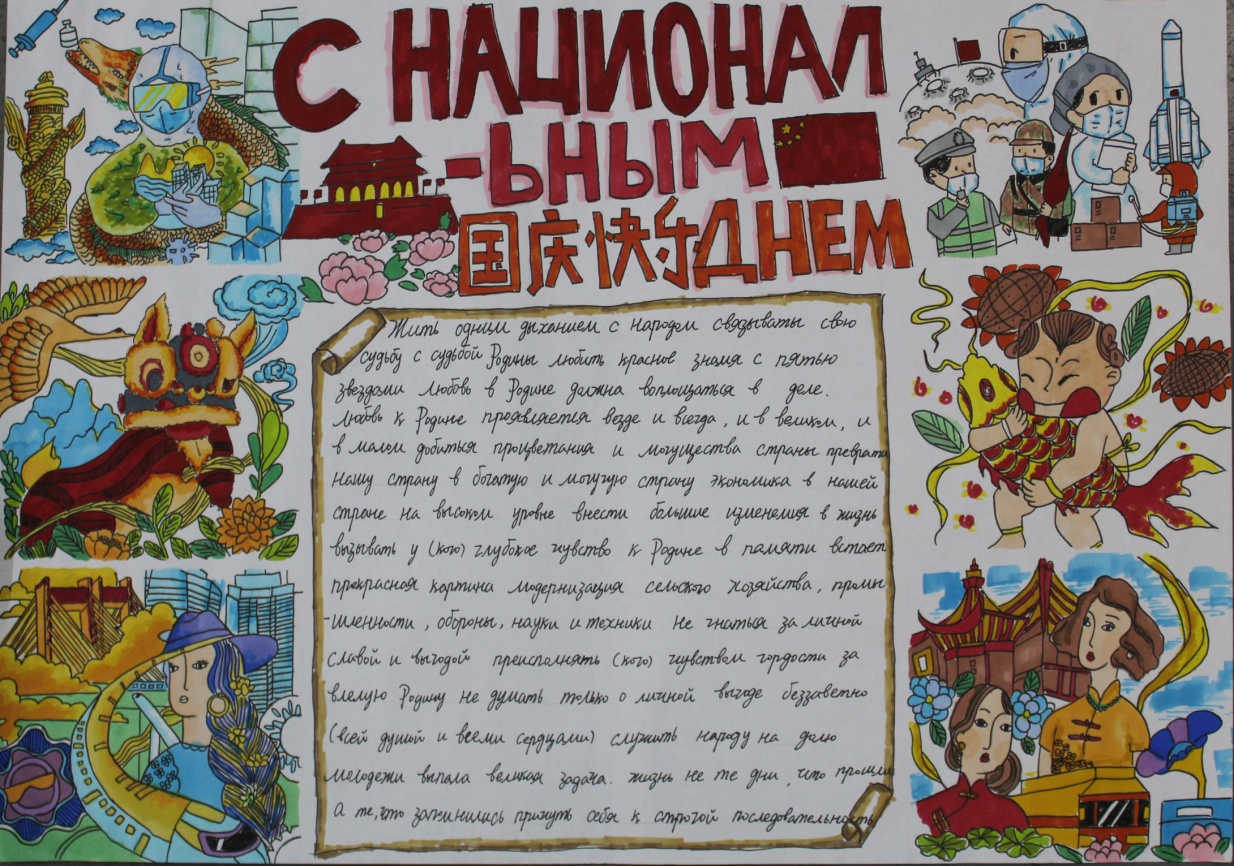 С НАЦИОНАЛ
-ЬНЫМ
国庆快乐 ДНЕМ
Жить одним дыханием с народом связываты свою
судьбу с судьбой Родины любить красное знамя с пятью
звездами любовь в Родине должна воплощаться в деле.
любовь к Родине проявляется везде и всегда, и в великом, и
в малом добиться процветания и могущества страны преврати
нашу страну в богатую и могучую страну экономика в нашей
стране на высоком уровне внести большие изменения в жизнь
вызывать у (кого) глубокое чувство к Родине в памяти встает
прекрасная картина модернизация сельского хозяйства, промы
-шленности, обороны, науки и техники не гнаться за личной
славой и выгодой преисполнять (кого) чувством гордости за
Родину не думать только о личной выгоде беззаветно
(всей душой и всеми сердцами) служить народу на долю
молодежи выпала великая задача. жизнь не те дни, что прошли
а те, что запомнились приучть себя к строгой последовательность